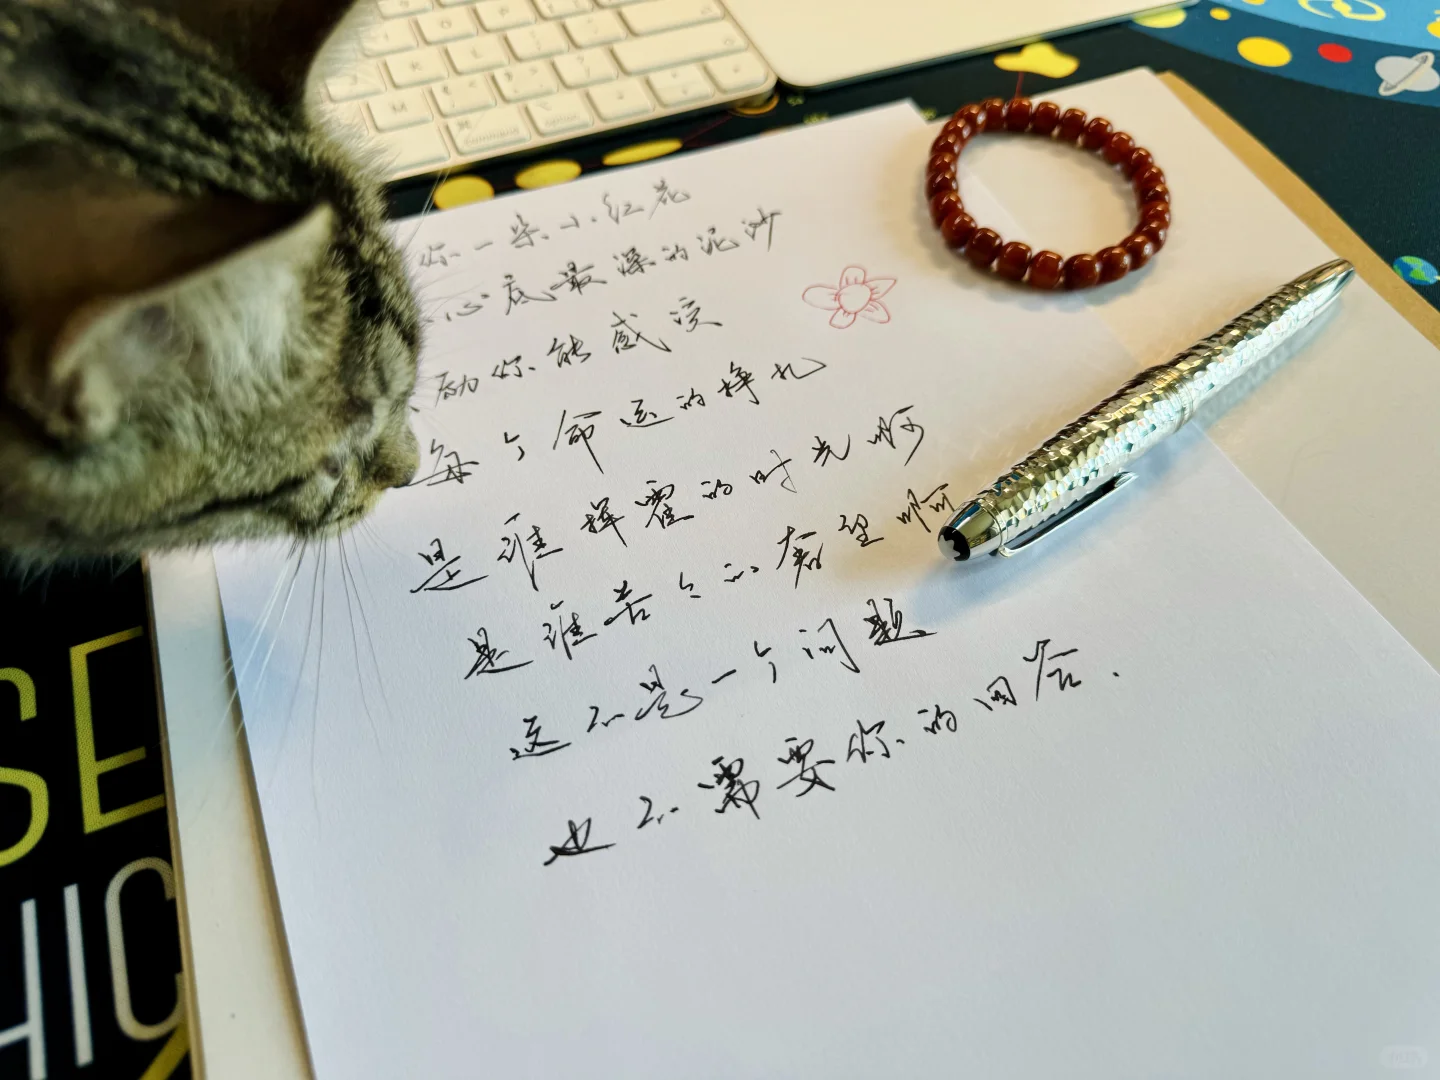 你一朵小红花
心底最深的泥沙
励你能感受
每个命运的挣扎
是谁挥霍的时光啊
是谁苦苦的希望啊
这不是一个问题
也不需要你的回答.
command
option
SE
HIC